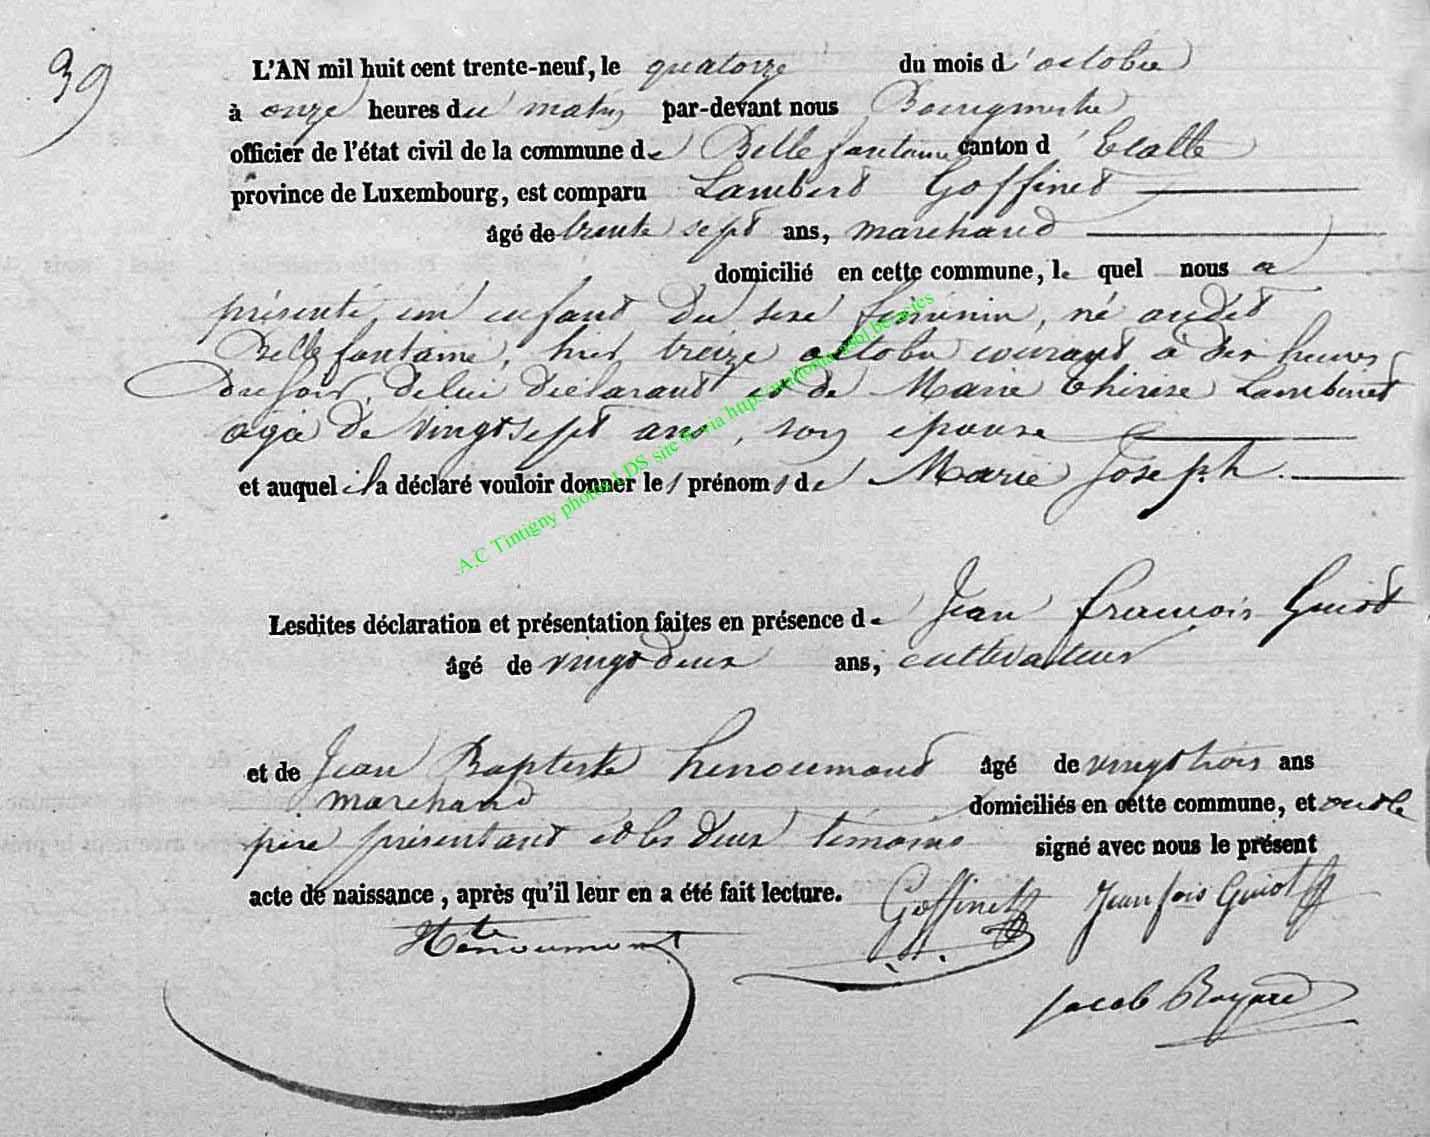 39
L'AN mil huit cent trente-neuf, le quatorze du mois d'octobre
à onze heures du matin par-devant nous Bourgmestre
officier de l'état civil de la commune de Bellefontaine canton d'Etalle
province de Luxembourg, est comparu Lambert Goffinet
âgé de trente sept ans, marchand
domicilié en cette commune, le quel nous a
présenté un enfant du sexe féminin, né audit
Bellefontaine, hier treize octobre courant a dix heures
du soir, de lui déclarant et de Marie Thérèse Lambinet
agée de vingt sept ans, son épouse
et auquel il a déclaré vouloir donner les prénoms de Marie Joseph.
Lesdites déclaration et présentation faites en présence de Jean françois Guiot
âgé de vingt deux ans, cultivateur
et de Jean Baptiste henoumont âgé de vingt trois ans
marchand domiciliés en cette commune, et ont le
père présentant et les deux témoins signé avec nous le présent
acte de naissance, après qu'il leur en a été fait lecture.
Goffinet Jean fois Guiot
Henoumont
Jacob
A.C Tintigny photos LDS site & via http://wallonia-asbl.be/actes